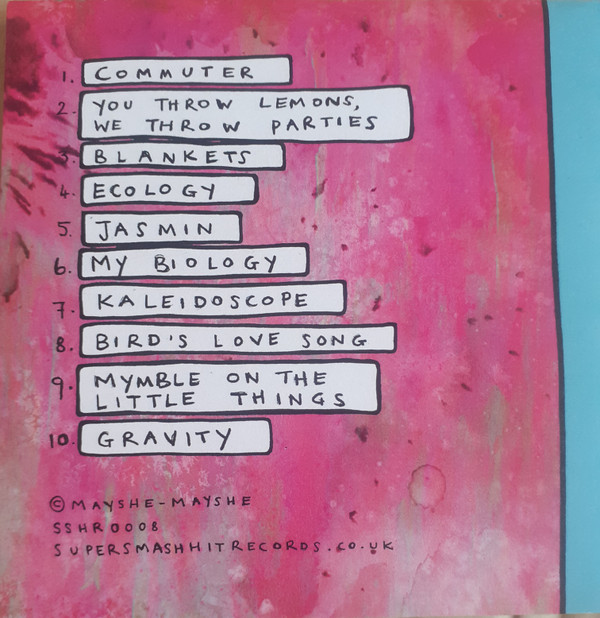 1. COMMUTER
2. YOU THROW LEMONS,
WE THROW PARTIES
3. BLANKETS
4. ECOLOGY
5. JASMIN
6. MY BIOLOGY
7. KALEIDOSCOPE
8. BIRD'S LOVE SONG
9. MYMBLE ON THE
LITTLE THINGS
10. GRAVITY
© MAYSHE-MAYSHE
SSHR0008
SUPERSMASHHITRECORDS.CO.UK